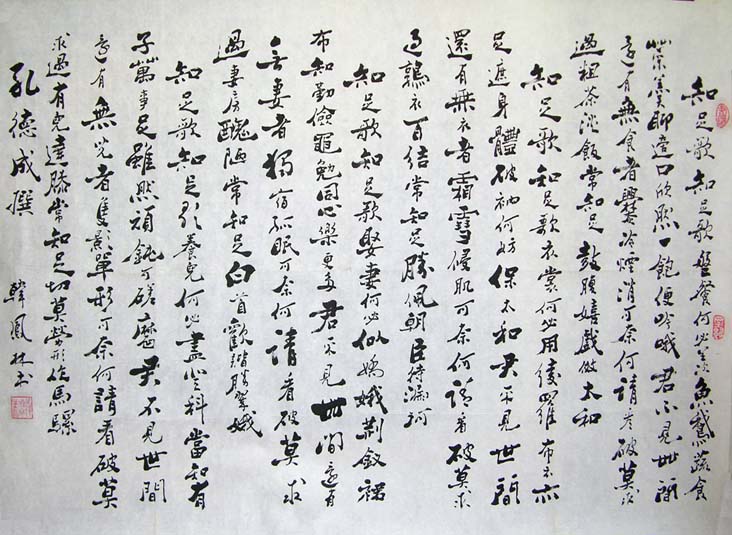 知足歌知足歌盤餐何必羨魚鵝蔬食
藜羹聊適口欣然一飽便吟哦君不見世間
還有無食者爨冷煙消可奈何請看破莫求
過粗茶淡飯常知足鼓腹嬉戲做太和
知足歌知足歌衣裳何必用綾羅布衣亦
足遮身體破衲何妨保太和君不見世間
還有無衣者霜雪侵肌可奈何請看破莫求
過鶉衣百結常知足勝佩朝臣待漏珂
知足歌知足歌娶妻何必似嫦娥荊釵裙
布知勤儉黽勉同心樂更多君不見世間還有
無妻者獨宿孤眠可奈何請看破莫求
過妻房醜陋常知足白首歡諧勝翠娥
知足歌知足引養兒何必盡登科當知有
子萬事足雖然頑鈍可磋磨君不見世間
還有無兒者隻影單形可奈何請看破莫
求過有兒達膝常知足切莫勞形作馬騾
孔德成撰
韓鳳林書